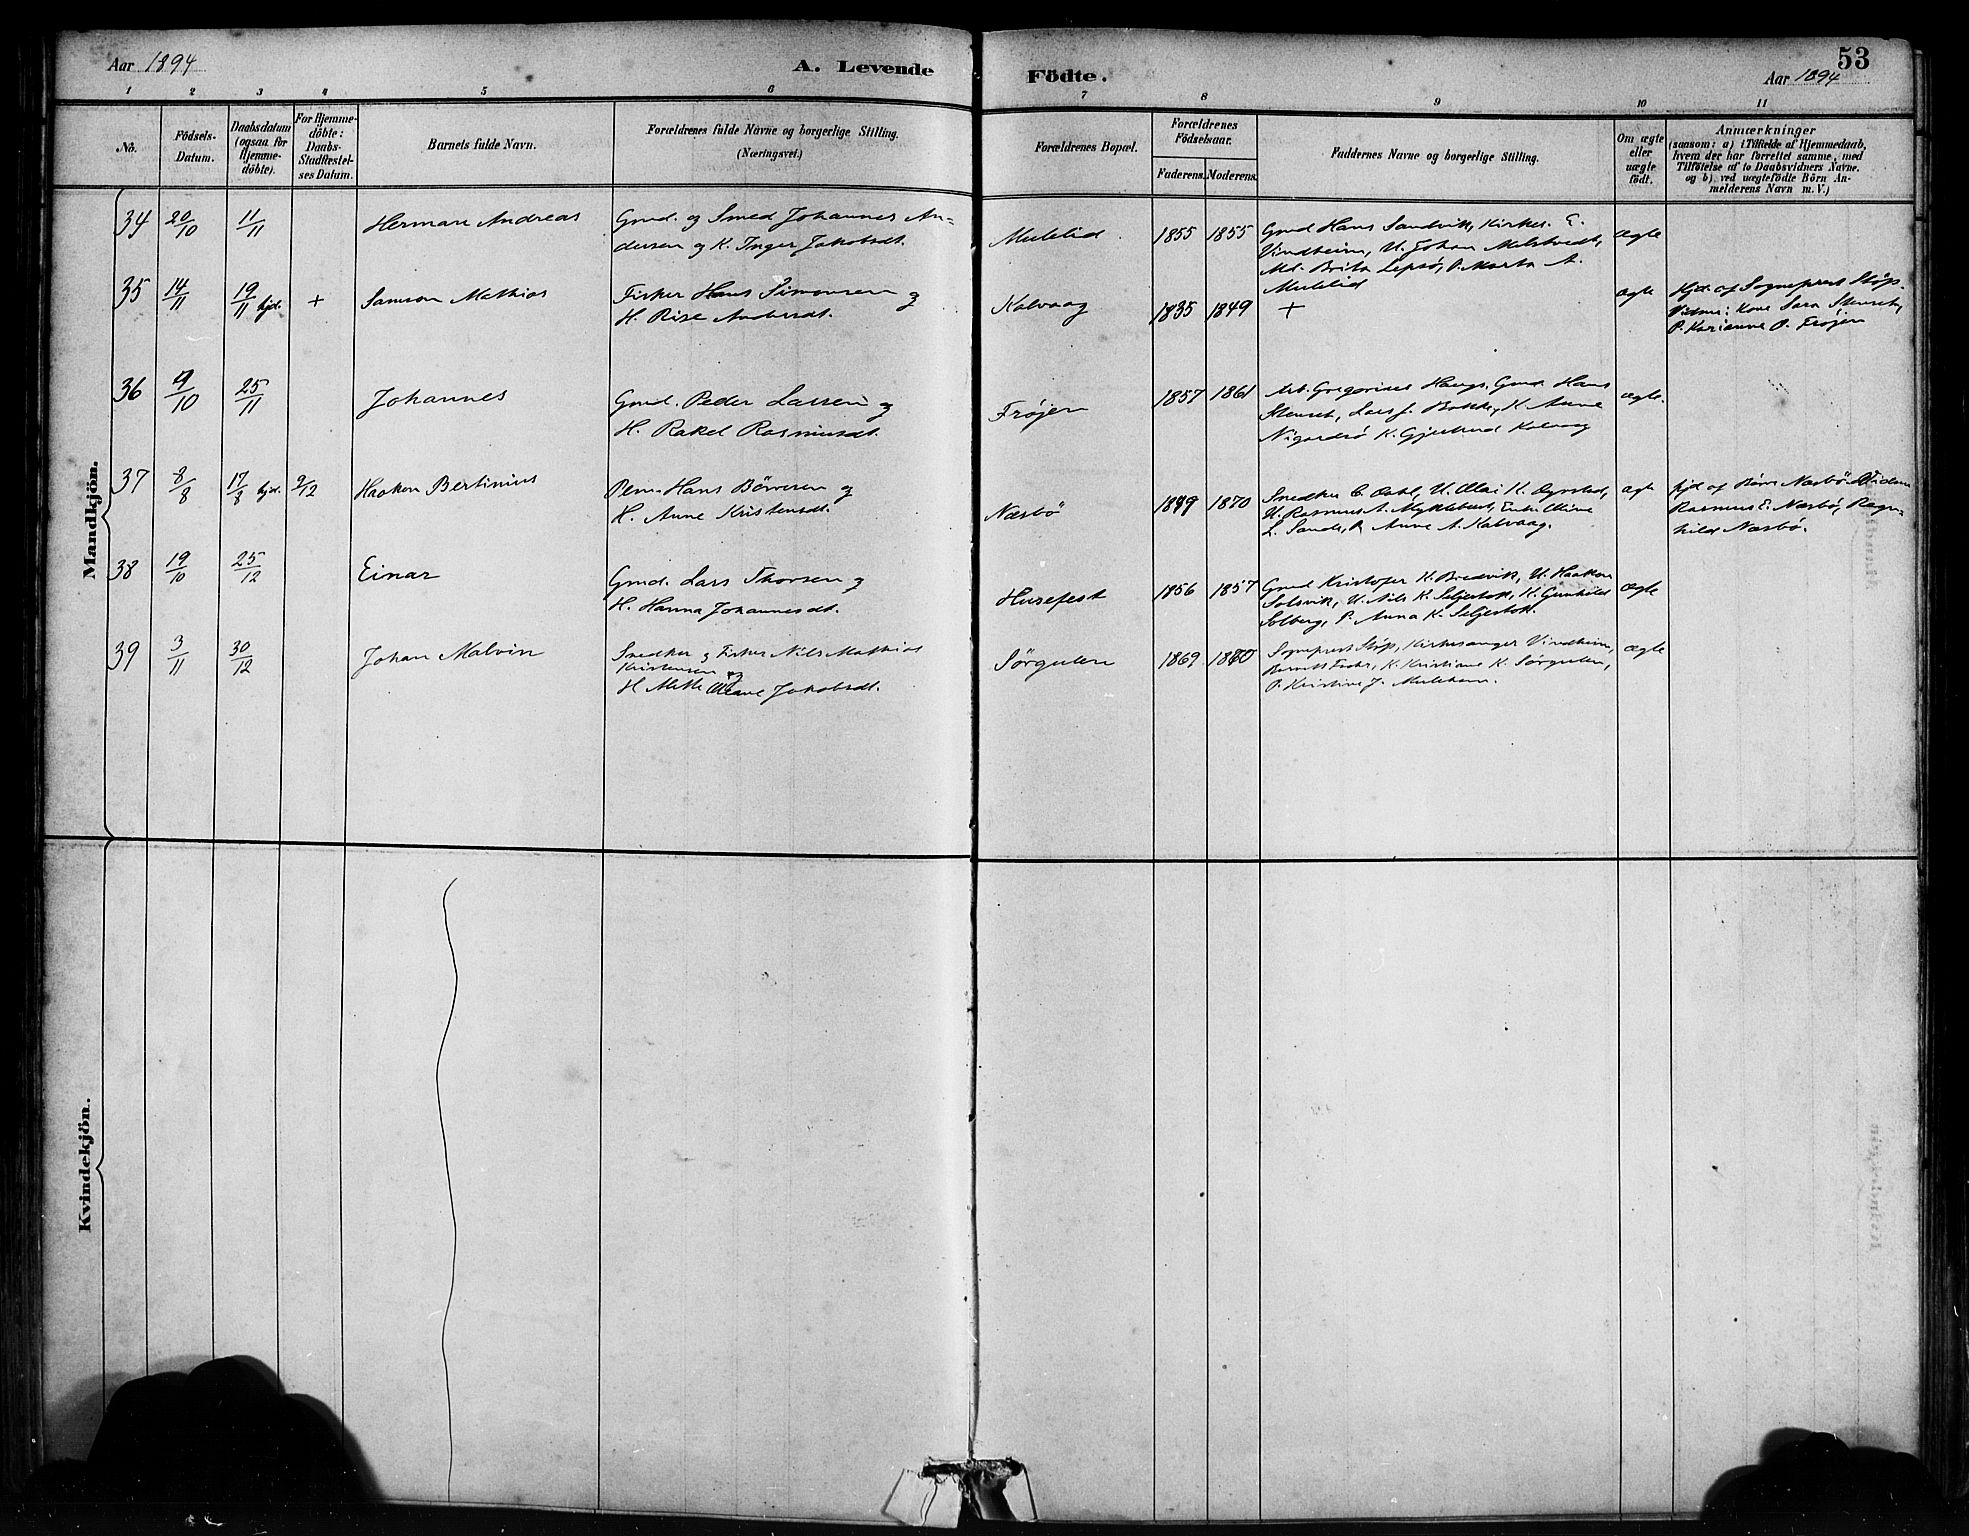 Aar 1894
A. Levende Födte.
53
Aar 1894
1 2 3 4 5 6 7 8 9 10 11
No.
Födsels-
Datum.
Daabsdatum
(ogsaa for
Hjemme-
döbte).
For Hjemme-
döbte:
Daabs-
Stadfæstel-
ses Datum.
Barnets fulde Navn.
Forældrenes fulde Navne og borgerlige Stilling.
(Næringsvei.)
Forældrenes Bopæl.
Forældrenes
Födselsaar.
Faderens. Moderens.
Faddernes Navne og borgerlige Stilling.
Om ægte
eller
uægte
födt.
Anmærkninger
(saasom: a) i Tilfælde af Hjemmedaab,
hvem der har forrettet samme, med
Tilföielse af to Daabsvidners Navne.
og b) ved uægtefödte Börn An-
melderens Navn m. V.)
Mandkjön.
34 20/10 11/11 Herman Andreas
Gmd. og Smed Johannes An-
dersen og K. Inger Jakobsdt.
Mulelid 1855 1855
Gmd Hans Sandvik, Kirkes. E.
Vindheim, U. Johan Melstvedt,
Md. Brita Lepsö, P. Marta A.
Mulelid
ægte
35 14/11 19/11 hjd. + Samson Mathias
Fisker Hans Simonsen og
H. Rise Andersdt.
Kalvaag 1835 1849 +
ægte
Hjd. af Sogneprest Stöp.
Vidner: Kone Sara Stenset,
P. Karianne P. Fröjen
36 9/10 25/11 Johannes
Gmd. Peder Larsen og
H. Rakel Rasmusdt.
Fröjen 1857 1861
Arb. Gregorius Hauge, Gmd. Hans
Stenset, Lars J. Bakke, K. Anne
Nigardsö K. Gjertrud Kalvaag
ægte.
37 8/8 17/8 hjd. 9/12 Haakon Bertinius
Hans Börresen og
H. Anne Kristensdt.
Næsbö 1849 1870
Snedker C. Dahl, U. Olai K.
U. Rasmus A. Myklebust, Enke Oline
L. Sande, P. Anne A. Kalvaag.
ægte
hjd af Börre Næsbö. Vidner
Rasmus E. Næsbö, Ragn-
hild Næsbö.
38 19/10 25/12 Einar
Gmd. Lars Thorsen og
H. Hanna Johannesdt.
Husefest 1856 1857
Gmd Kristofer H. Bredvik, U. Haakon
Solsvik, U. Nils K. Seljestok, K. Gunhild
Solberg, P. Anna K. Seljestok.
ægte
39 3/11 30/12 Johan Malvin
Snedker og Fisker Nils Mathias
Kristensen og
H. Mette Oleane Jakobsdt.
Sörgulen 1869 1870
Sogneprest Stöp, Kirkesanger Vindheim,
Barnets Fader, K. Kristiane K. Sörgulen,
P. Kristine J. Mulehamn.
ægte
Kvindekjön.